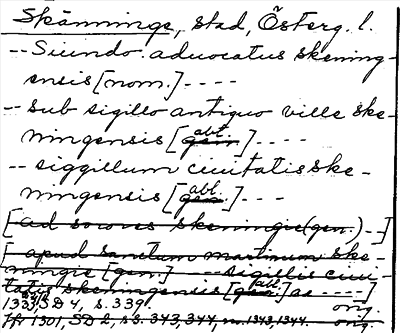 Skänninge, stad, Österg. l.
-- Siundo aduocatus skening-
ensis [nom.] ----
-- sub sigillo antiquo ville ske-
abl.
ningensis [gen.] ----
-- siggillum ciuitatis ske-
abl.
ningensis [gen.] ---
[ad sorores skeningie (gen.) --]
[apud sanctum martinum ske-
ningie [gen.] ---- sigillis ciui-
tatis skeningensis [gen.] abl. as ----]
1333, SD 4, s. 339. orig.
Jfr 1301, SD 2, s. 343, 344, n. 1343, 1344. orig.